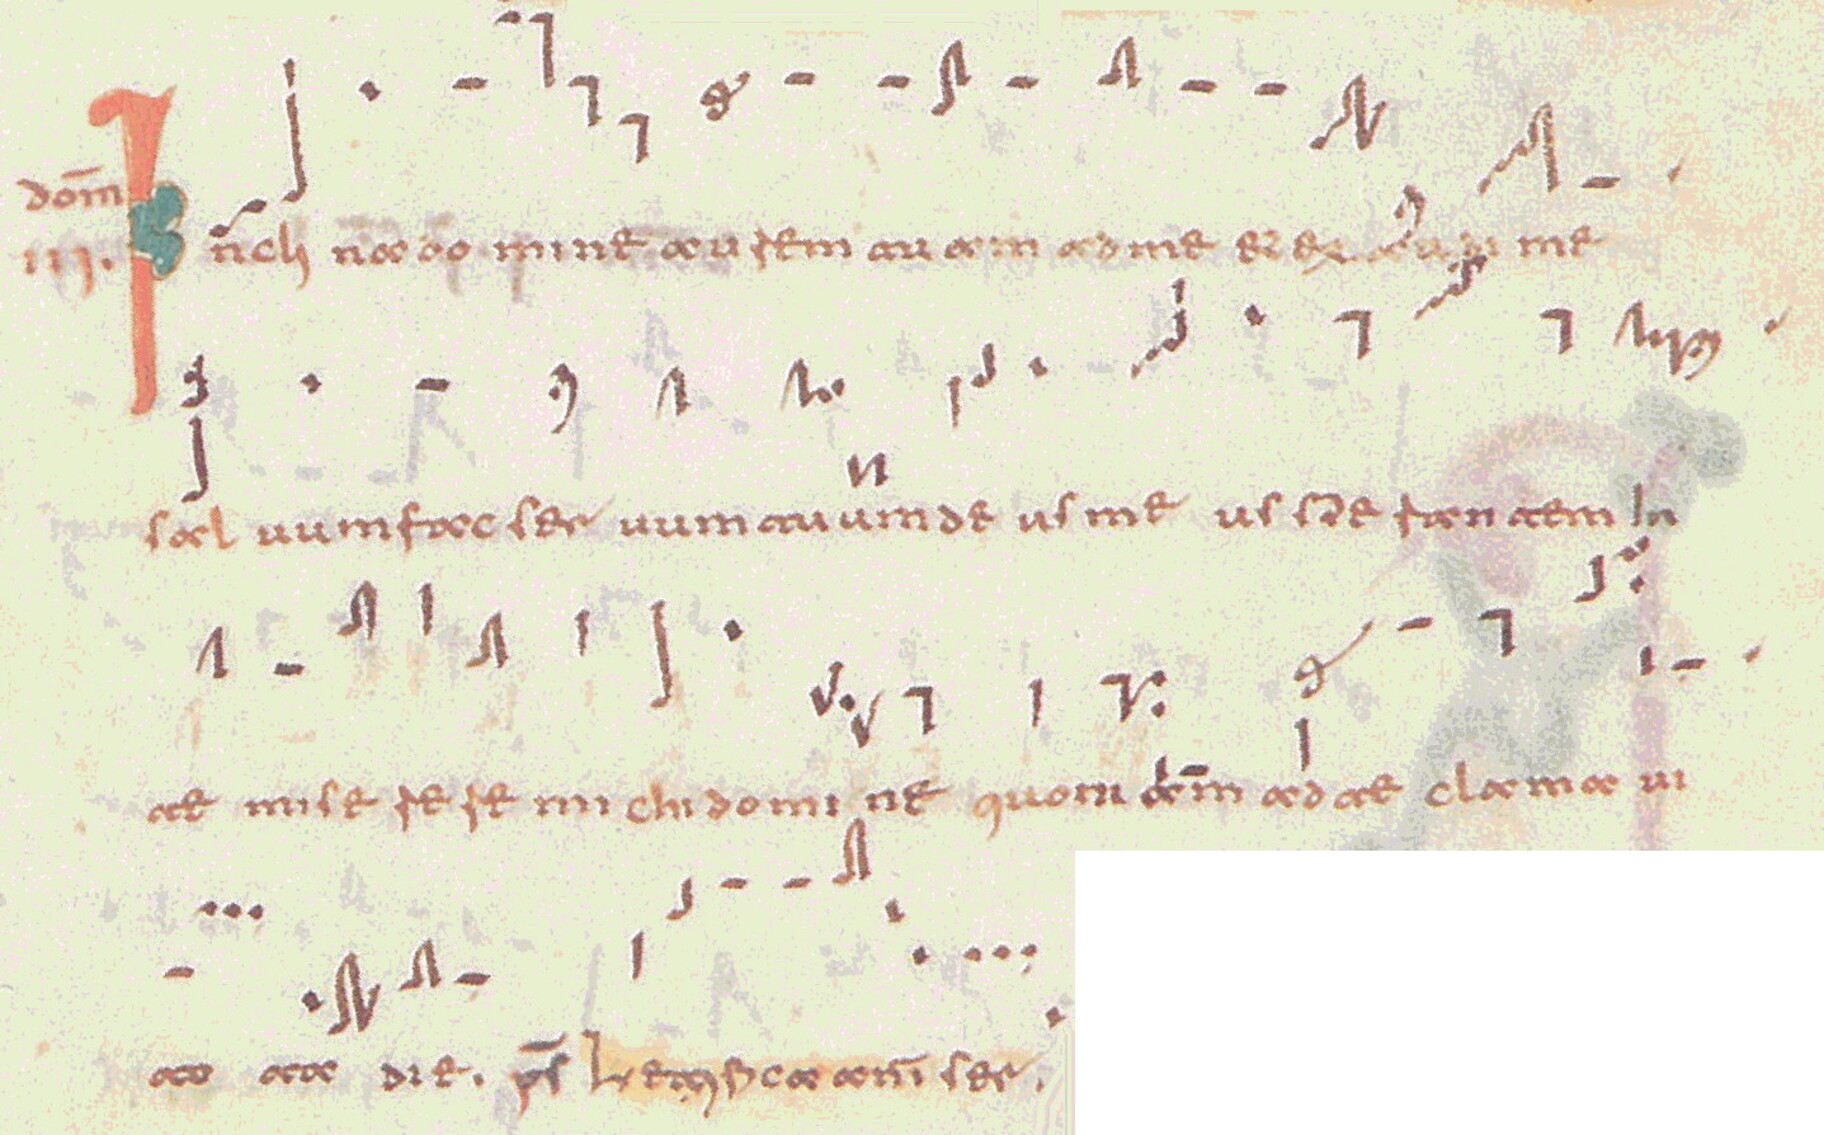 Inclina domine aurem tuam ad me et exaudi me
dom̄
III.
saluum fac seruum tuum deus meus sperantem in
te miserere michi domine quoniā ad te clamaui
tota die. p̄s Letifica anī ser.